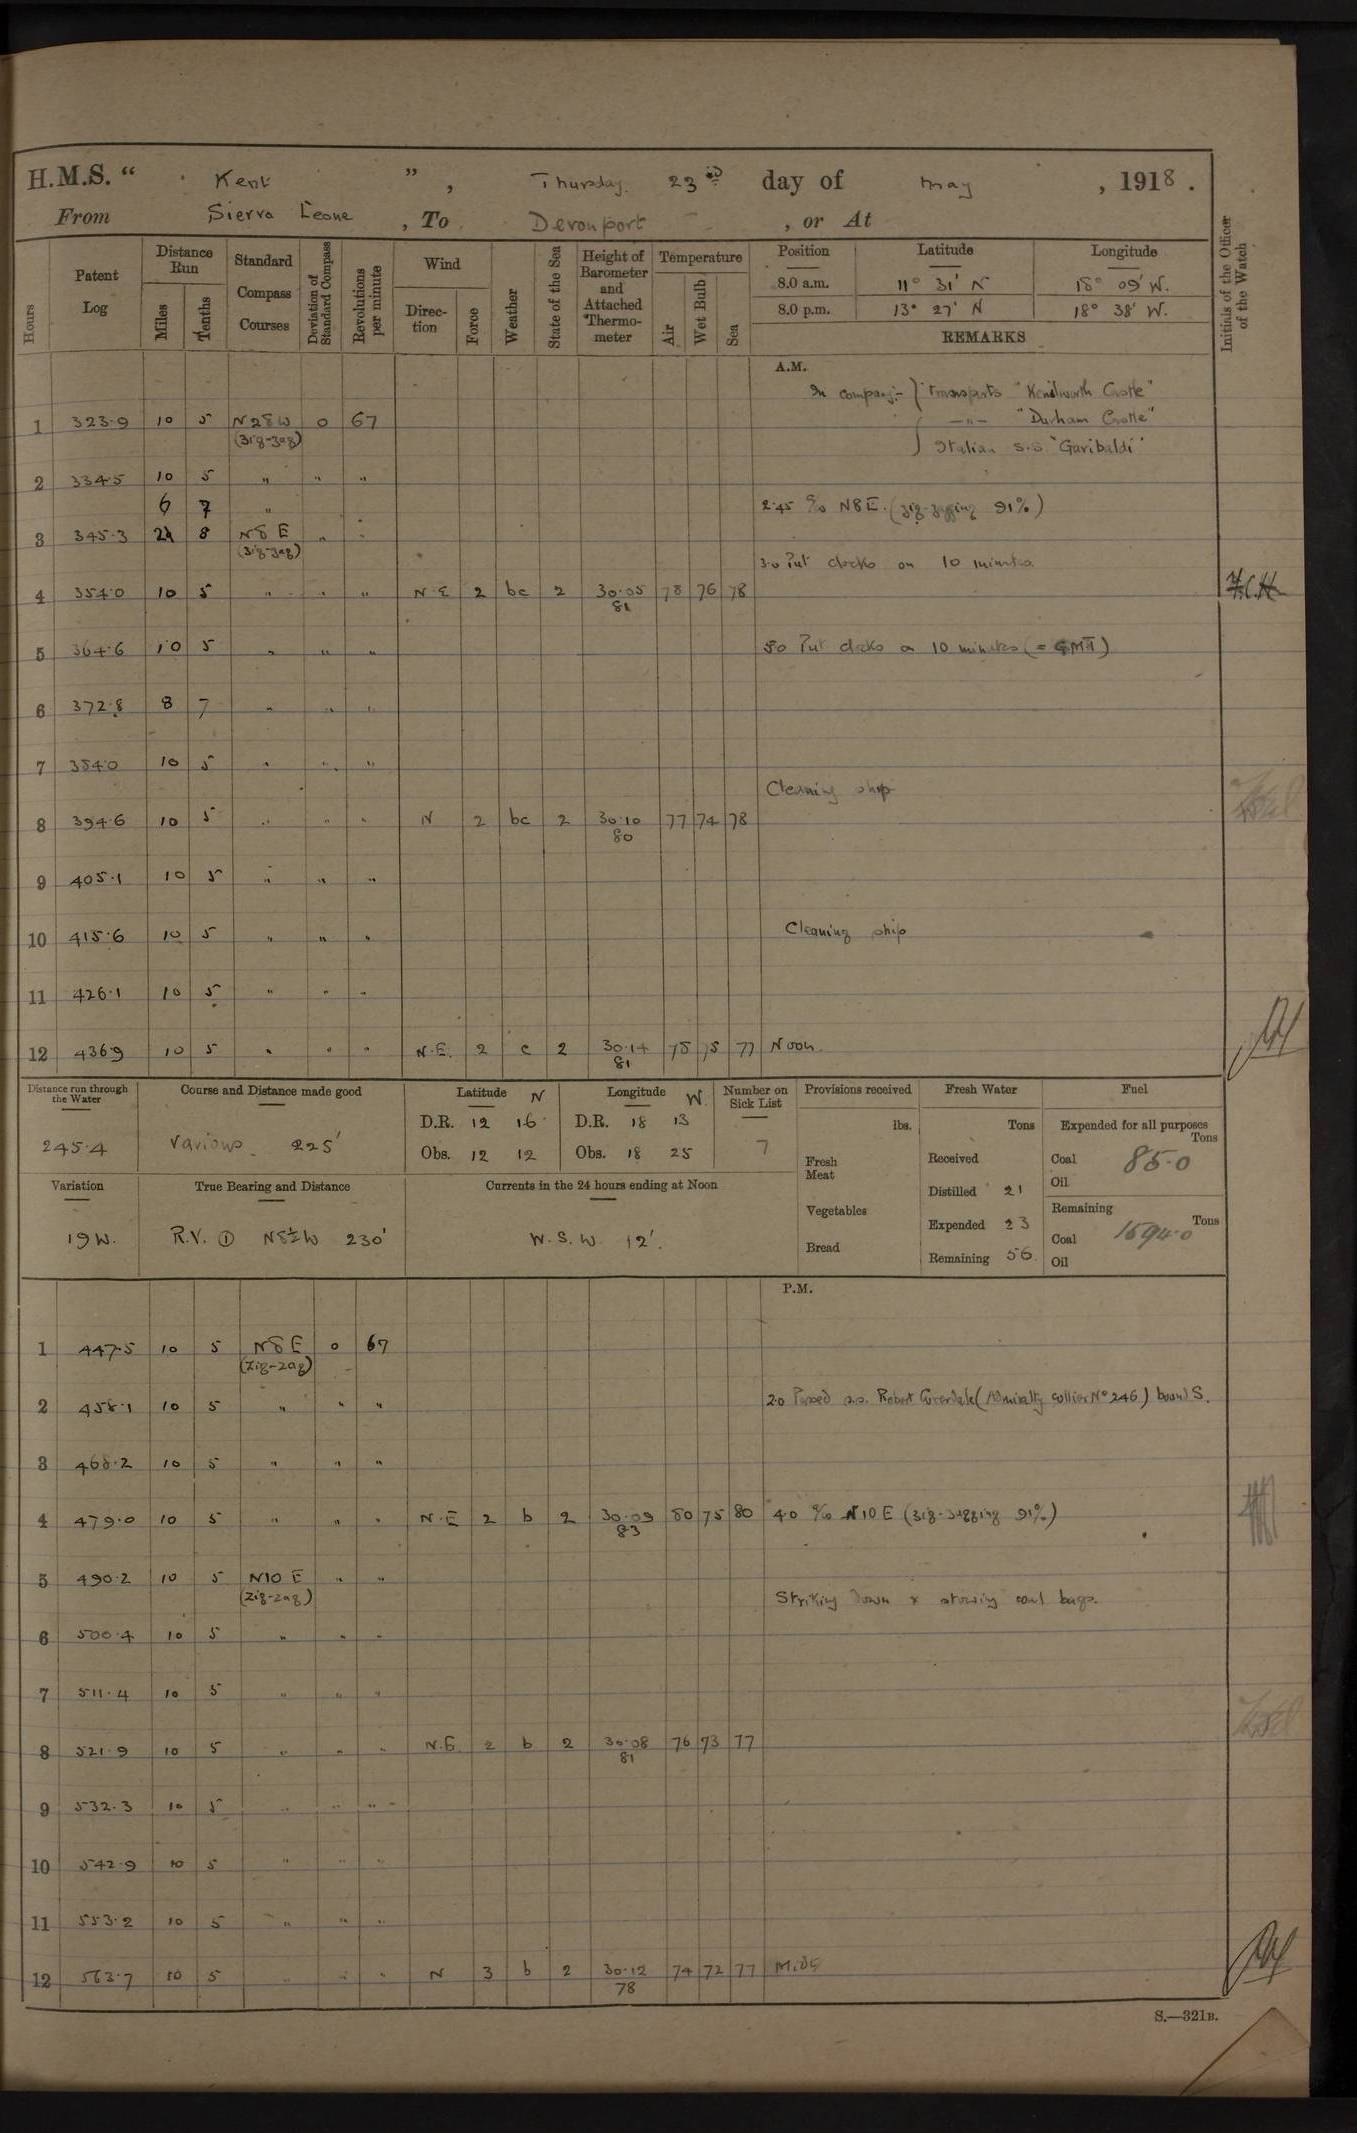 H.M.S. " Kent " , Thursday 23rd day of May , 1918 .
From Sierra Leone , To Devonport , or At
Hours
Patent Log
Distance Run
Miles
Tenths
Standard Compass Courses
Deviation of Standard Compass
Revolutions per minute
Wind
Direction
Force
Weather
State of the Sea
Height of Barometer and Attached Thermometer
Temperature
Air
Wet Bulb
Sea
Position Latitude Longitude
8.0 a.m. 11° 31' N 18° 09' W.
8.0 p.m. 13° 27' N 18° 38' W.
REMARKS
Initials of the Officer of the Watch
A.M.
In company:- Transports "Kenilworth Castle"
1 323.9 10 5 N28W 0 67 -"- "Durham Castle"
(zig-zag) Italian S.S. "Garibaldi"
2 334.5 10 5 " " "
6 7 " 2.45 c/o N8E. (zig-zagging 91%)
3 345.3 8 N8E " "
(zig-zag)
3.0 Put clocks on 10 minutes
4 354.0 10 5 " " " N.E 2 bc 2 30.05 78 76 78
81
5 364.6 10 5 " " " 5.0 Put clocks on 10 minutes (= GMT)
6 372.8 8 7 " " "
7 384.0 10 5 " " "
Cleaning ship
8 394.6 10 5 " " " N 2 bc 2 30.10 77 74 78
80
9 405.1 10 5 " " "
10 415.6 10 5 " " " Cleaning ship
11 426.1 10 5 " " "
12 436.9 10 5 " " " N.E. 2 c 2 30.14 78 75 77 Noon.
81
Distance run through the Water
245.4
Course and Distance made good
Various 225'
Latitude N
D.R. 12 16
Obs. 12 12
Longitude W
D.R. 18 13
Obs. 18 25
Number on Sick List
7
Provisions received
lbs.
Fresh Meat
Vegetables
Bread
Fresh Water
Tons
Received
Distilled 21
Expended 23
Remaining 56
Fuel
Expended for all purposes
Tons
Coal 85.0
Oil
Remaining
Tons
Coal 1694.0
Oil
Variation
19 W.
True Bearing and Distance
R.V. ① N8½W 230'
Currents in the 24 hours ending at Noon
W.S.W 12'.
P.M.
1 447.5 10 5 N8E 0 67
(zig-zag)
2 458.1 10 5 " " " 2.0 Passed s.s. Robert (Admiralty collier No 246) bound S.
3 468.2 10 5 " " "
4 479.0 10 5 " " " N.E 2 b 2 30.09 80 75 80 4.0 c/o N10E (zig-zagging 91%)
83
5 490.2 10 5 N10E " "
(zig-zag) Striking down & stowing coal bags.
6 500.4 10 5 " " "
7 511.4 10 5 " " "
8 521.9 10 5 " " " N.E. 2 b 2 30.08 76 73 77
81
9 532.3 10 5 " " "
10 542.9 10 5 " " "
11 553.2 10 5 " " "
12 563.7 10 5 " " " N 3 b 2 30.12 74 72 77 Midt
78
S.—321B.